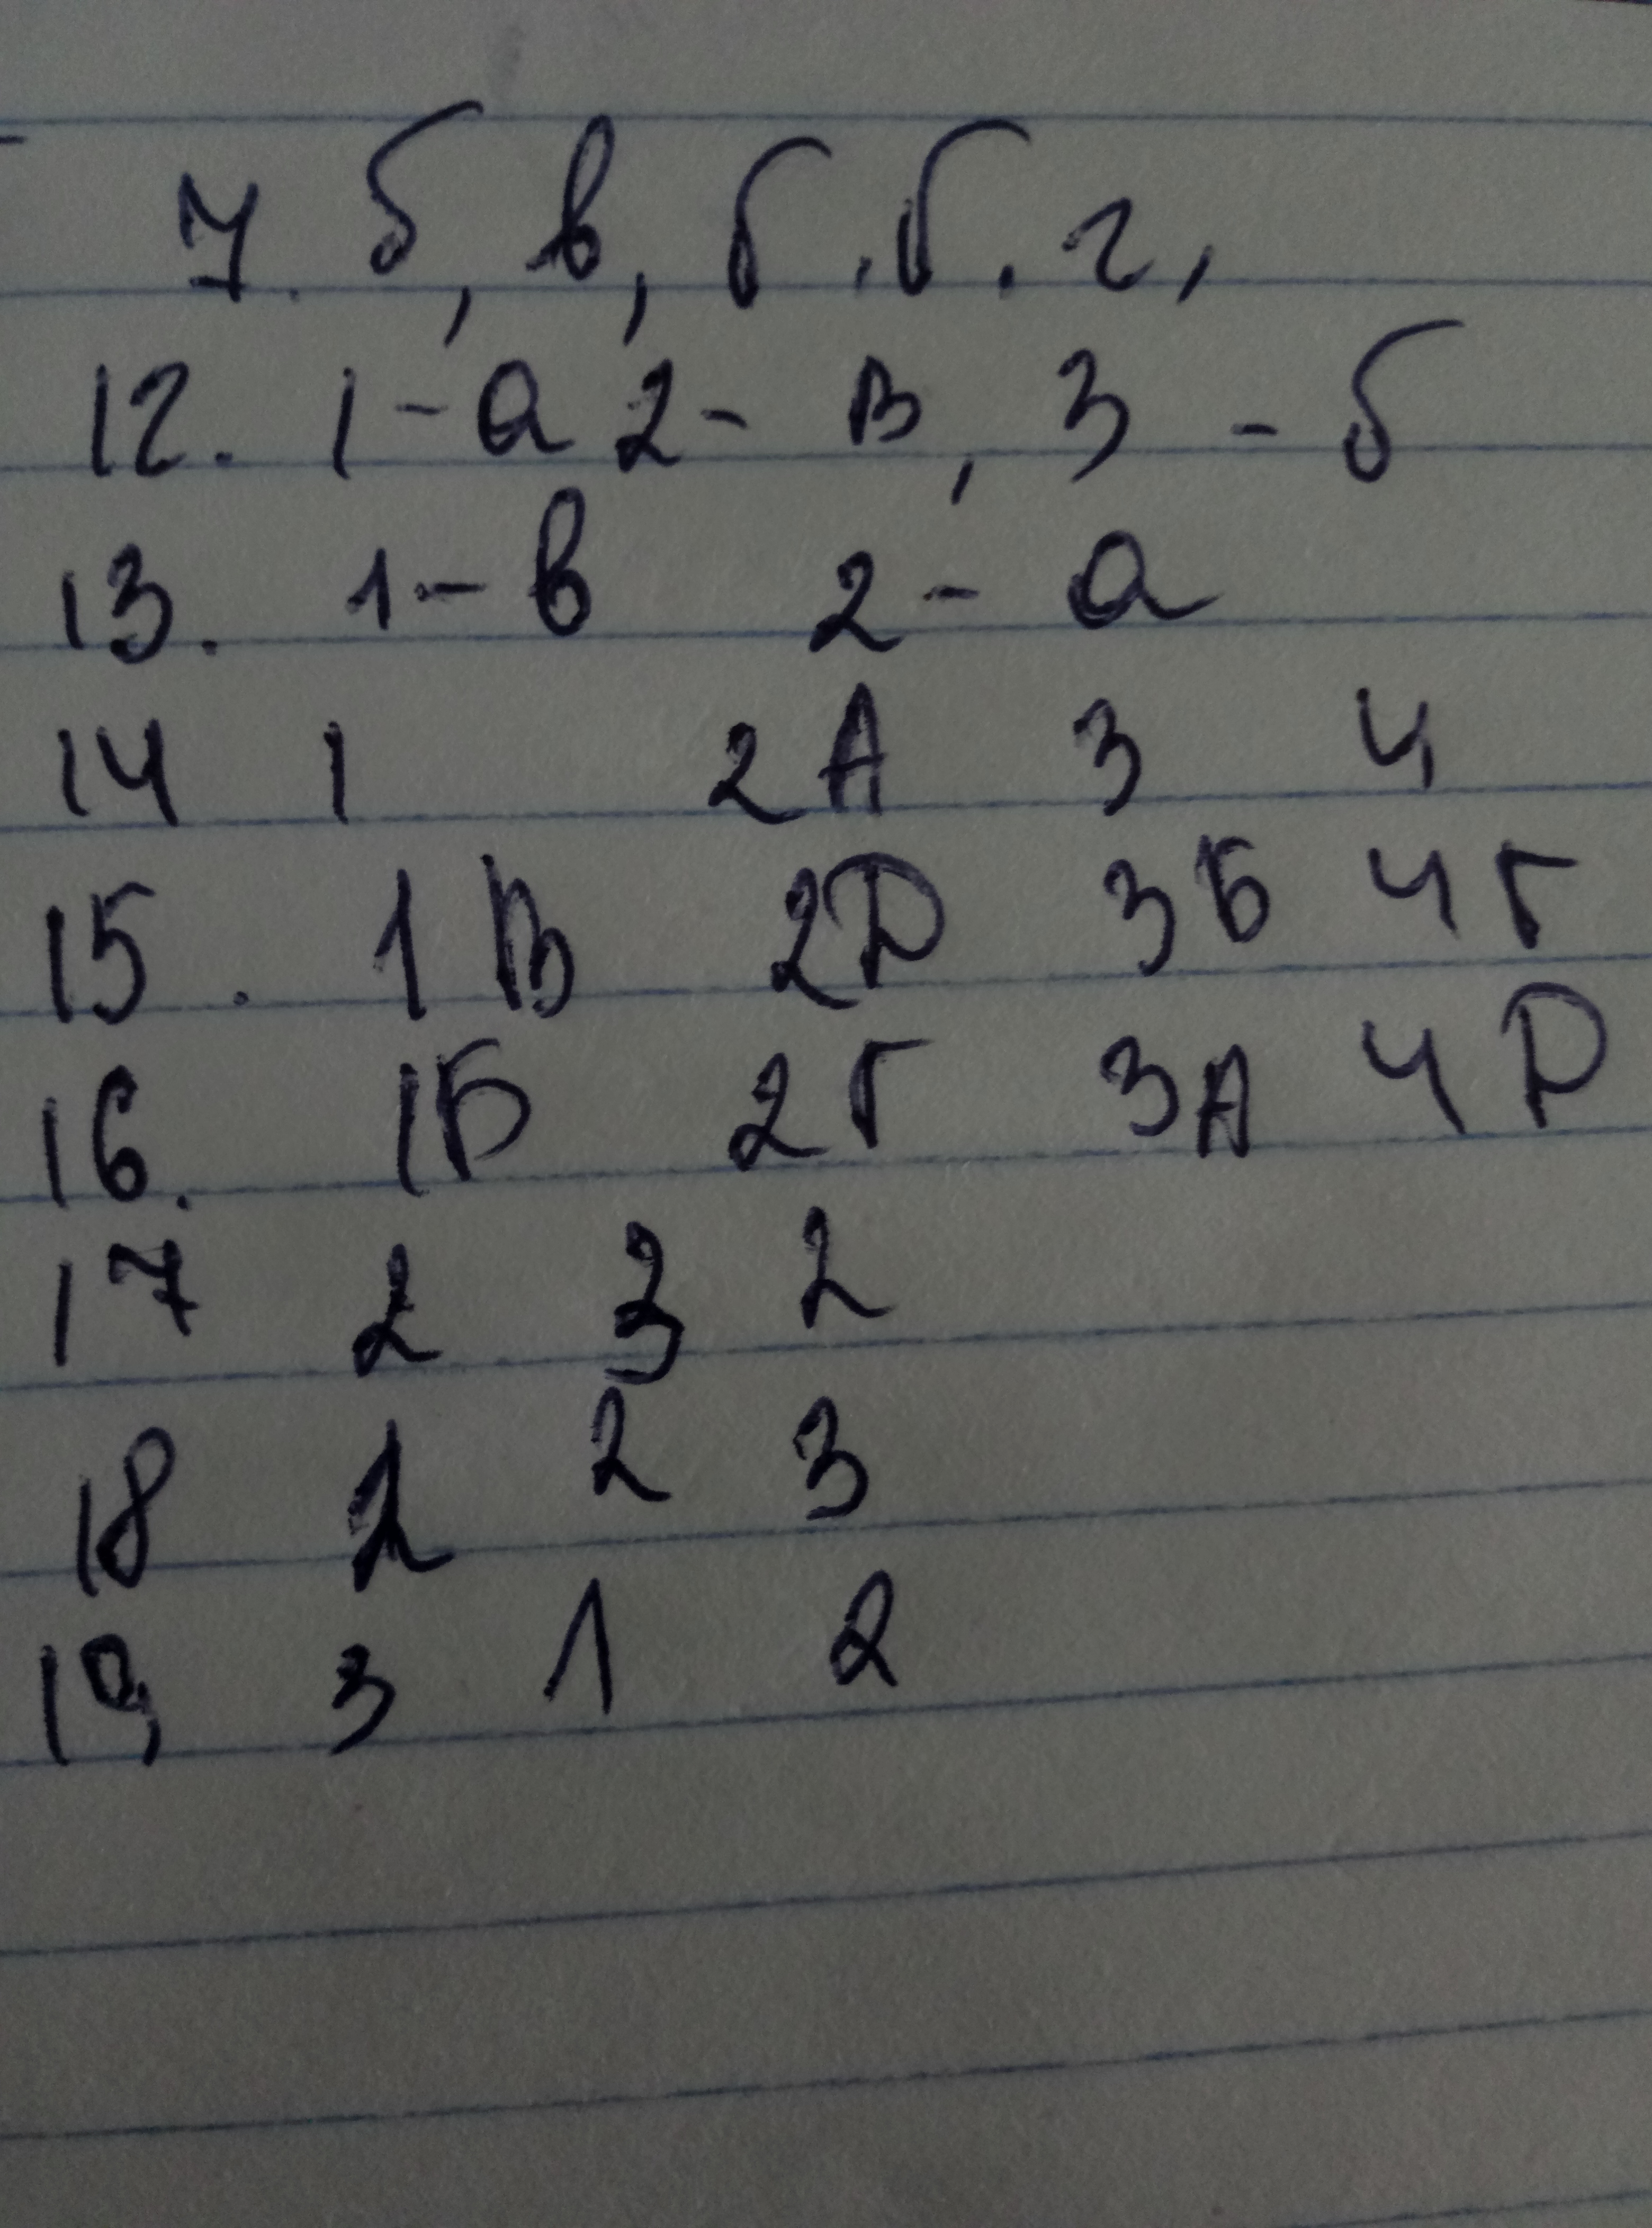 7. б, в, б. б. г,
12. 1-а 2- в, 3 - б
13. 1-в 2- а
14 1 2А 3 4
15. 1В 2Д 3Б 4Г
16. 1Б 2Г 3А 4Д
17 2 3 2
18 2 3
19 3 1 2